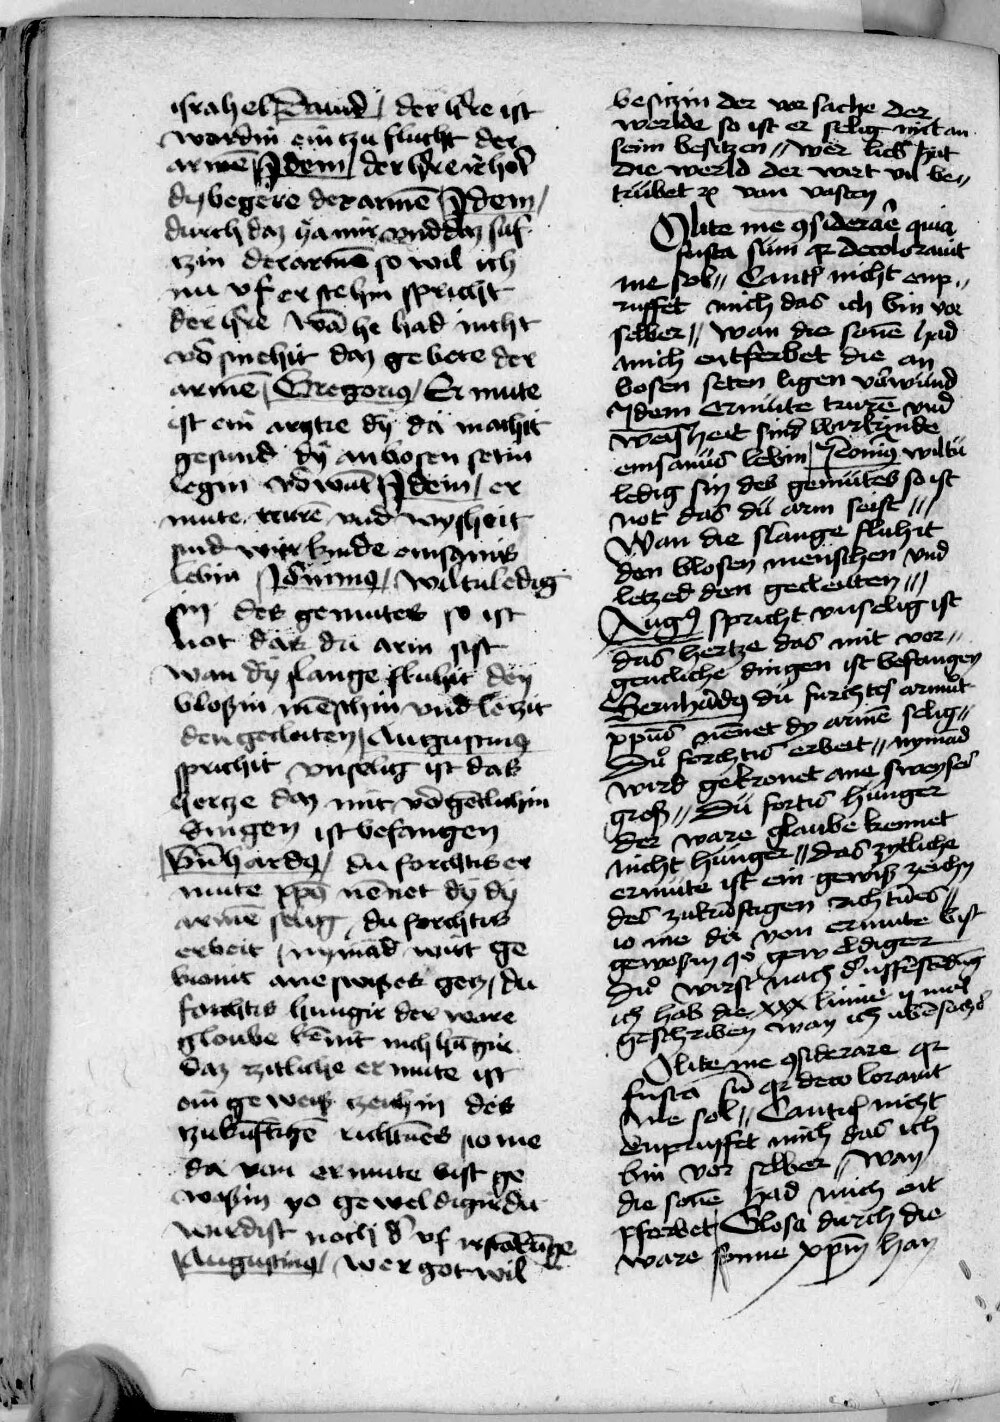 israhel Dauid / der h're ist
wordin ein tzu flucht der
arme / Jdem / der h're irhort
dy begere der armē / Jdem /
durch daz yamir vnd daz suf
tzin der armē so wil ich
nu vf er stehin spricht
der h're wā he had nicht
vorsmehit daz gebete der
armē / Gregorius / Ermute
ist ein arztie dy da machit
gesund dy an bosen setin
legin vorwūt / Jdem / er
mute trurē vnd wysheit
sind wirkinde einsamis
lebin / Jeronimus / wiltu ledig
sin des gemutes so ist
not das du arm sist
wan dy slange fluhit den
bloßin mēschin vnd letzit
den gecleiten / Augustinus
sprichit vnselig ist das
hertze daz mit vorgēclichin
dingen ist befangen
Bernhardus / du forchtis er
mute xpūs nēnet dy dy
armē selig du forchtis
erbeit / nymād wirt ge
kronit ane sweißes gen / du
forchtis hungir der ware
gloube kēnit nich hūgir
daz zitliche ermute ist
ein geweis tzeichin des
tzukūftigē richtūes io me
da von ermute bist ge
weßin yo geweldigir du
wirdist noch d' vf irstandūge
Augustinus / wer got wil
besitzin der vor sache der
werlde so ist er selig mit an
seim besitzen // wer lieb hat
die werld der wirt vil be //
trübet von vasten
Nolite me 9siderare quia
fusca sum qr decoloravit
me sol // Cant' nicht enp //
ruffet mich das ich bin vor
selber // wan die sone had
mich entferbet die an
bosen seten ligen vorwund
Jdem ermute trurē vnd
weisheit sind wirkinde
einsamis lebin / Jeronimus wiltu
ledig sin des gemutes so ist
not das du arm seist ///
Wan die slange fluhit
den blosen menschen vnd
letzed den gecleiten ///
Augus spricht vnselig ist
das hertze das mit vor //
genclichē dingen ist befangen
Bernhardus du furchtes armut
xpūs nēnet dy armē selig //
Du forchtis erbeit // nymād
wird gekronet ane sweyses
groß // Du fortis hunger
der ware glaube kennet
nicht hunger // das zytliche
ermute ist ein gewiß zeichn
des zukūftigen richtūes //
io me du von ermute bist
gewosin yo geweldiger
du wirst nach d' vffirstēdūg
ich hab die xxx linnie ij mal
geschriben wan ich ubersach'
Nolite me 9siderare qr
fusca sū qr decoloravit
me sol // Cantic' nicht
enpruffet mich das ich
bin vor selber / wan
die sone had mich ent
pferbet / Glosa durch die
ware sonne xpm han